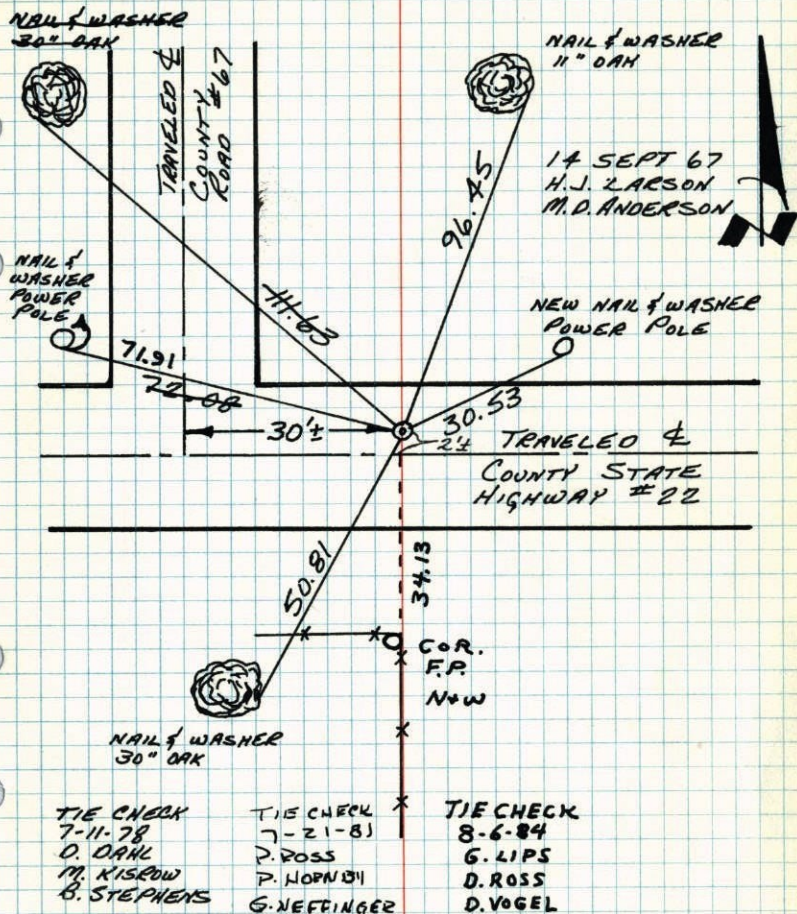 NAIL & WASHER
30" OAK
TRAVELED ℄
COUNTY
ROAD #67
NAIL & WASHER
11" OAK
14 SEPT 67
H.J. LARSON
M.D. ANDERSON
96.45
NAIL &
WASHER
POWER
POLE
111.63
NEW NAIL & WASHER
POWER POLE
71.91
72.08
30'±
30.53
2'±
TRAVELED ℄
COUNTY STATE
HIGHWAY #22
50.81
34.13
COR.
F.P.
N+W
NAIL & WASHER
30" OAK
TIE CHECK
7-11-78
D. DAHL
M. KISROW
B. STEPHENS
TIE CHECK
7-21-81
D. ROSS
P. HORNBY
G. NEFFINGER
TIE CHECK
8-6-84
G. LIPS
D. ROSS
D. VOGEL